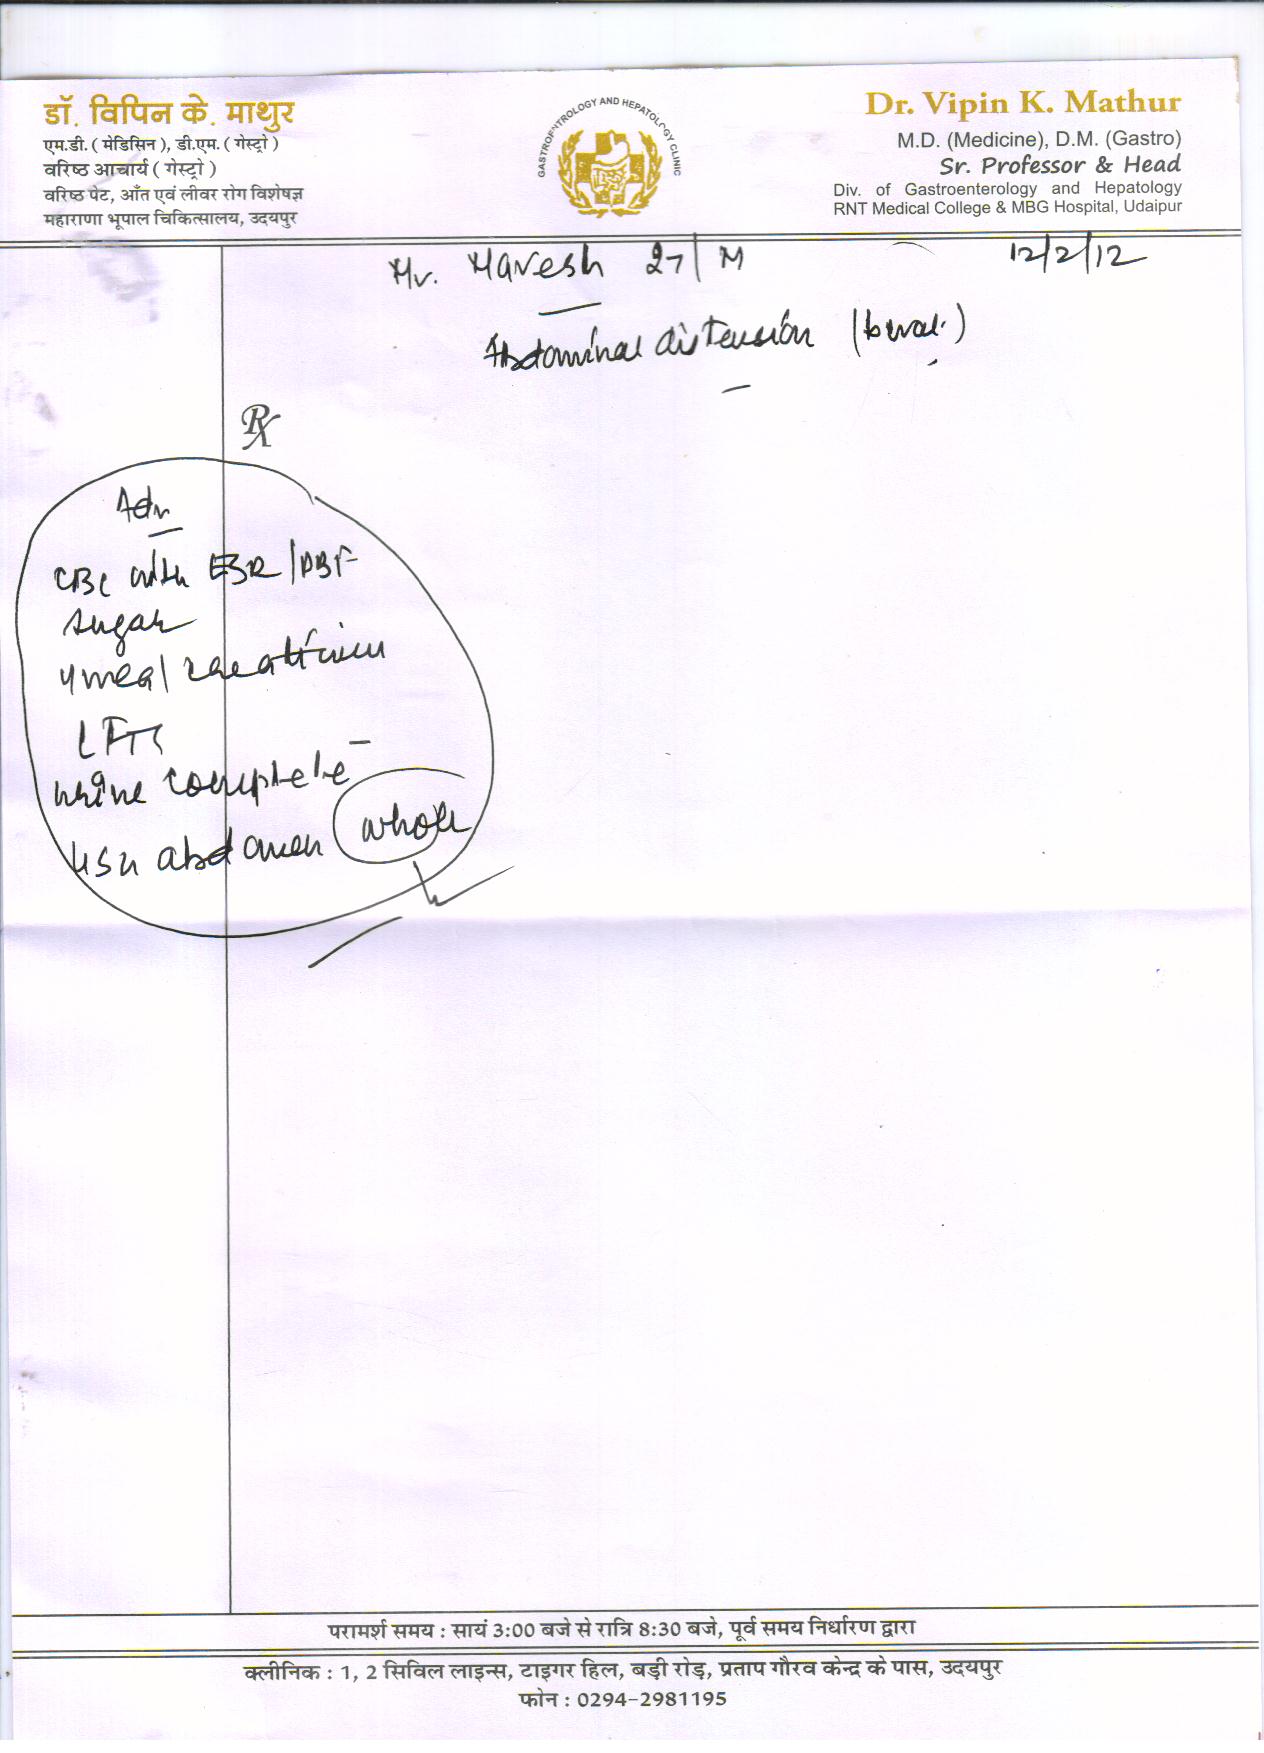 डॉ. विपिन के. माथुर
एम.डी. ( मेडिसिन ), डी.एम. ( गेस्ट्रो )
वरिष्ठ आचार्य ( गेस्ट्रो )
वरिष्ठ पेट, आँत एवं लीवर रोग विशेषज्ञ
महाराणा भूपाल चिकित्सालय, उदयपुर
GASTROENTROLOGY AND HEPATOLOGY CLINIC
Dr. Vipin K. Mathur
M.D. (Medicine), D.M. (Gastro)
Sr. Professor & Head
Div. of Gastroenterology and Hepatology
RNT Medical College & MBG Hospital, Udaipur
12/2/12
Mr. 27/M
Abdominal distension
Rx
Adv
CBC with ESR/PBF
sugar
urea/creatinin
LFTs
urine complete
USG abdomen whole
परामर्श समय : सायं 3:00 बजे से रात्रि 8:30 बजे, पूर्व समय निर्धारण द्वारा
क्लीनिक : 1, 2 सिविल लाइन्स, टाइगर हिल, बड़ी रोड़, प्रताप गौरव केन्द्र के पास, उदयपुर
फोन : 0294-2981195